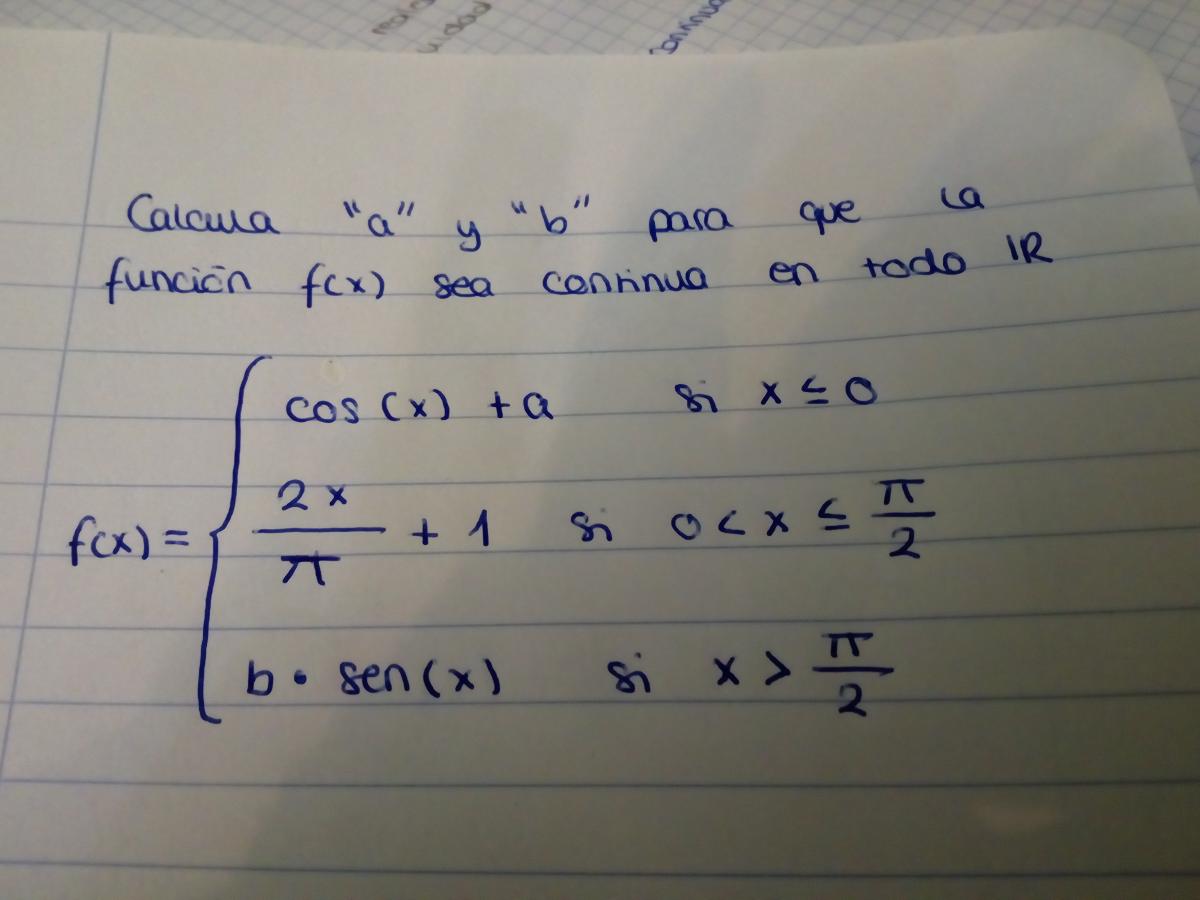 Calcula "a" y "b" para que la
función f(x) sea continua en todo IR
cos (x) + a si x ≤ 0
f(x) = 2x/π + 1 si 0 < x ≤ π/2
b · sen(x) si x > π/2